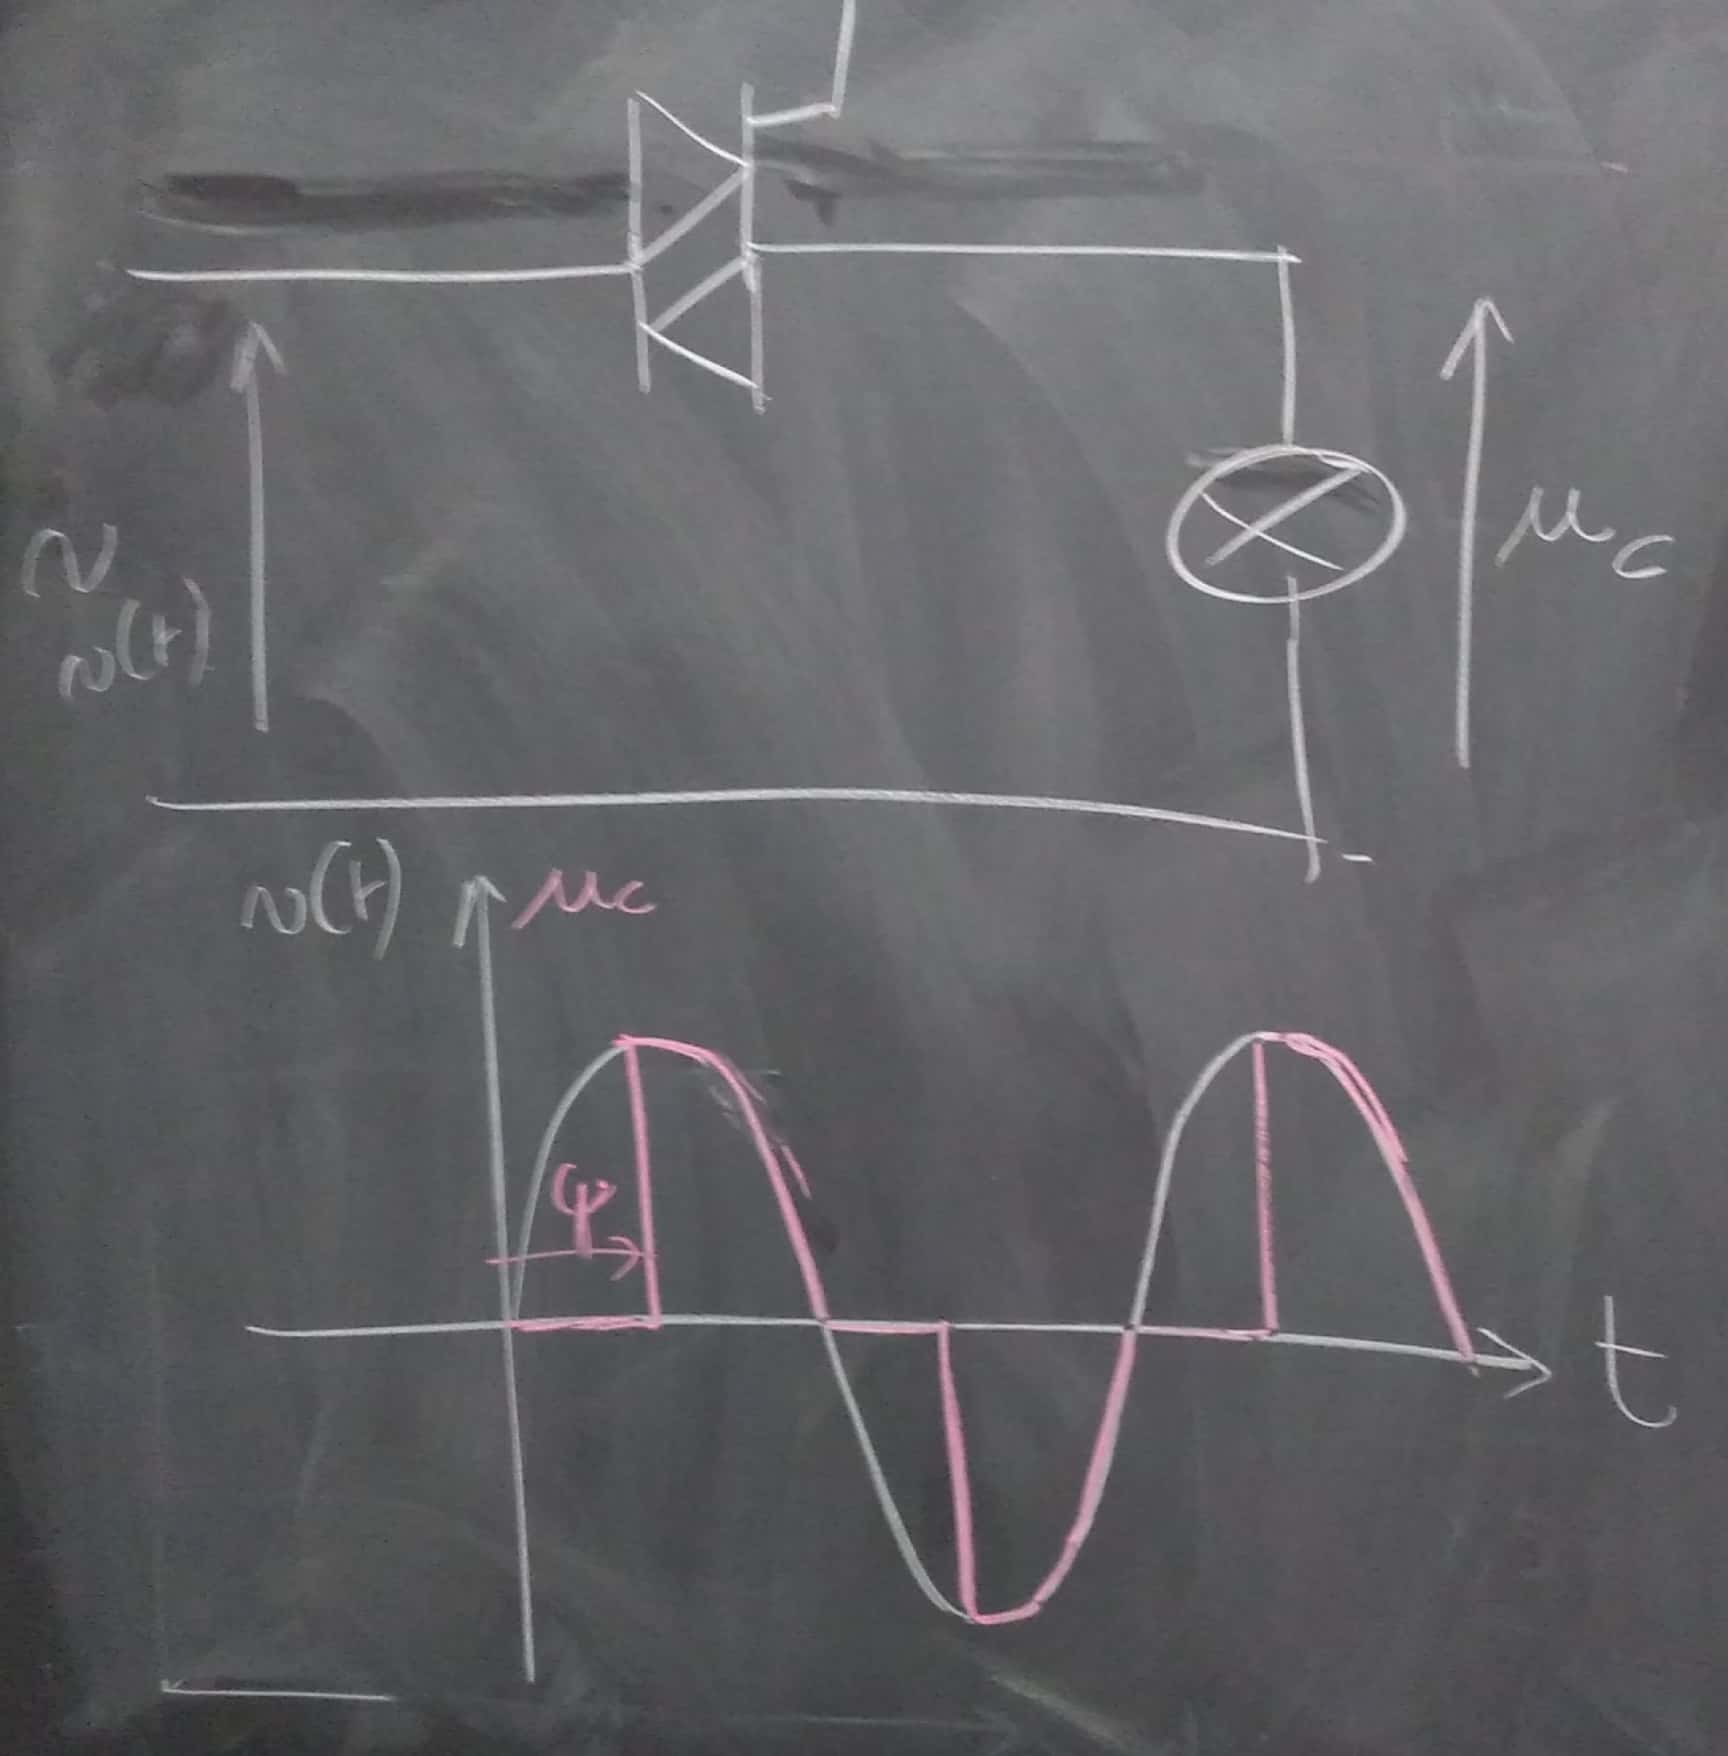 v
v(t)
uc
v(t) uc
φ
t